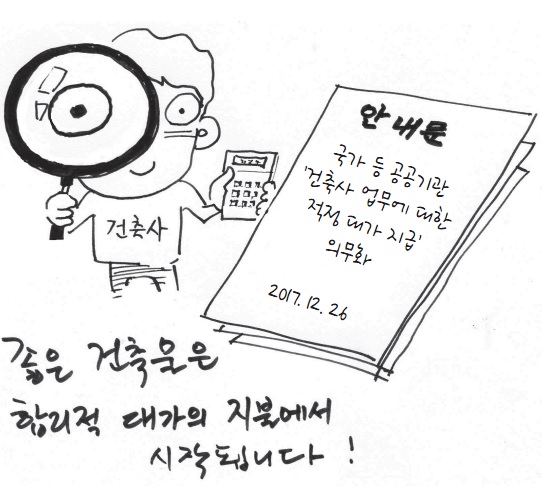 건축사
안내문
국가 등 공공기관
'건축사 업무에 대한
적정 대가 지급'
의무화
2017. 12. 26
좋은 건축물은
합리적 대가의 지불에서
시작됩니다 !